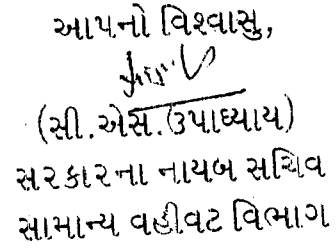 આપનો વિશ્વાસુ,
(સી.એસ.ઉપાધ્યાય)
સરકારના નાયબ સચિવ
સામાન્ય વહીવટ વિભાગ